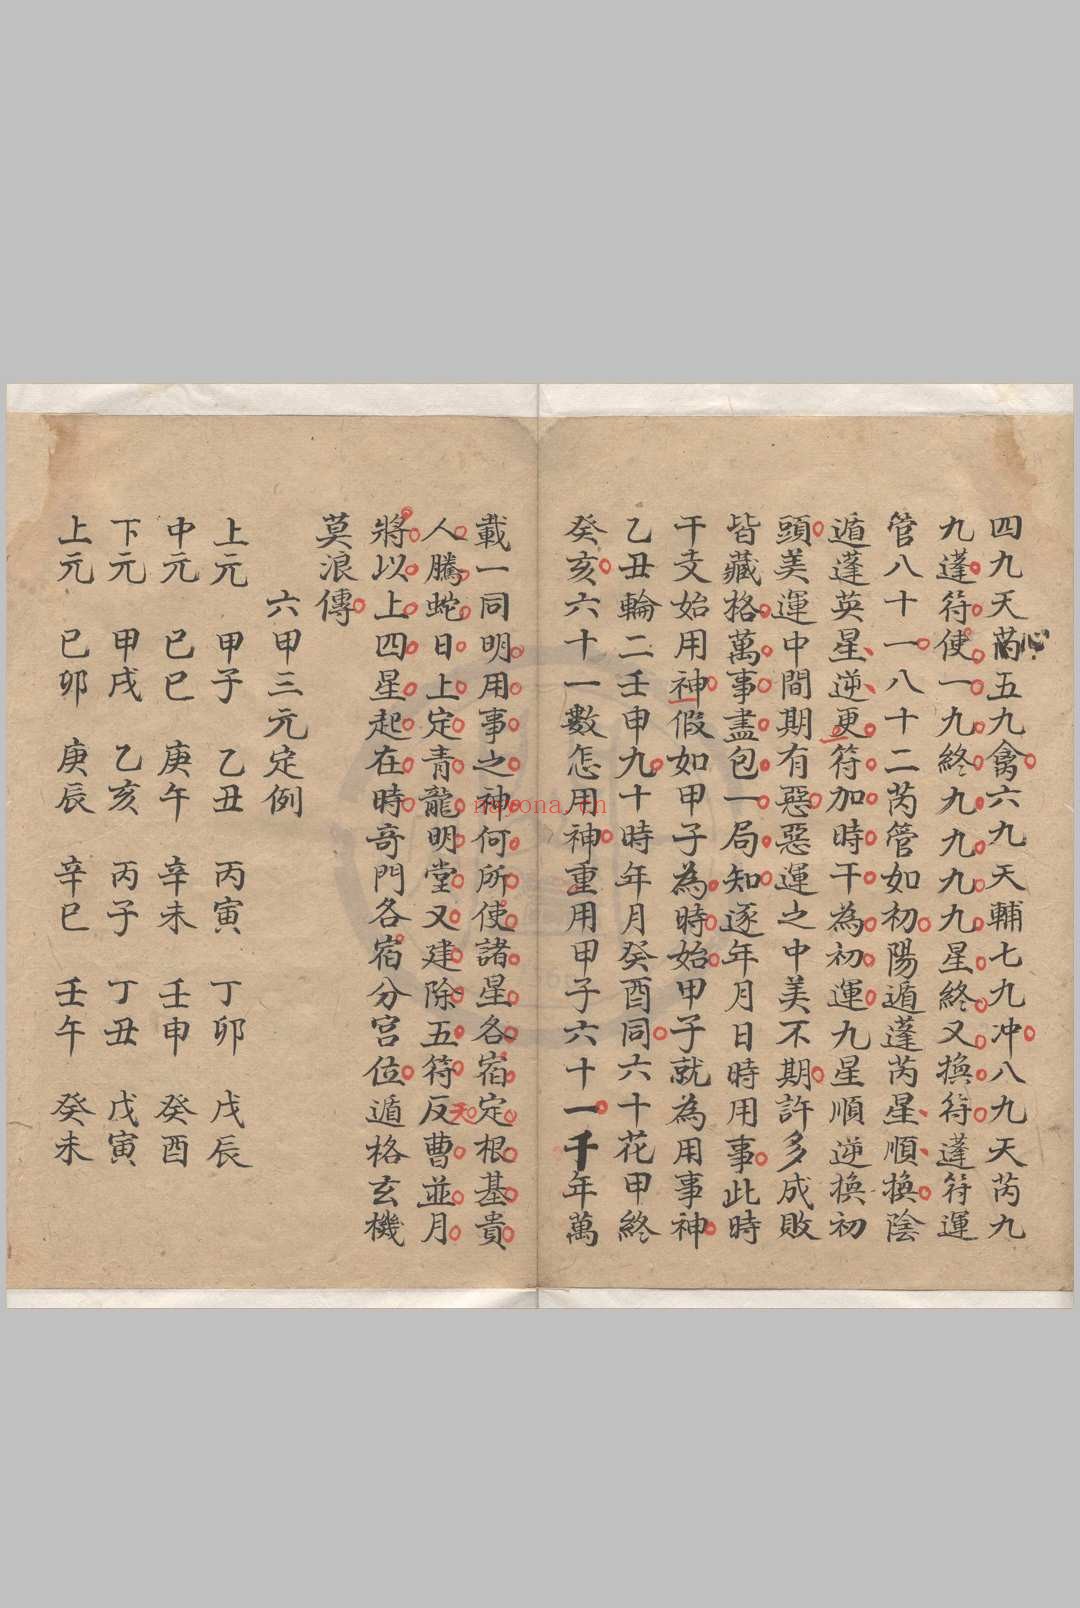 四九天芮心五九禽六九天輔七九冲八九天芮九
九蓬符使一九終九九九九星終又換符蓬符運
管八十一八十二芮管如初陽遁蓬芮星順換陰
遁蓬英星逆更符加時干為初運九星順逆換初
頭美運中間期有惡惡運之中美不期許多成敗
皆藏格萬事盡包一局知逐年月日時用事此時
干支始用神假如甲子為時始甲子就為用事神
乙丑輪二壬申九十時年月癸酉同六十花甲終
癸亥六十一數怎用神重用甲子六十一千年萬
載一同明用事之神何所使諸星各宿定根基貴
人騰蛇日上定青龍明堂又建除五符反天曹並月
將以上四星起在時奇門各宿分宮位遁格玄機
莫浪傳
六甲三元定例
上元 甲子 乙丑 丙寅 丁卯 戊辰
中元 巳巳 庚午 辛未 壬申 癸酉
下元 甲戌 乙亥 丙子 丁丑 戊寅
上元 巳卯 庚辰 辛巳 壬午 癸未
nayona.cn